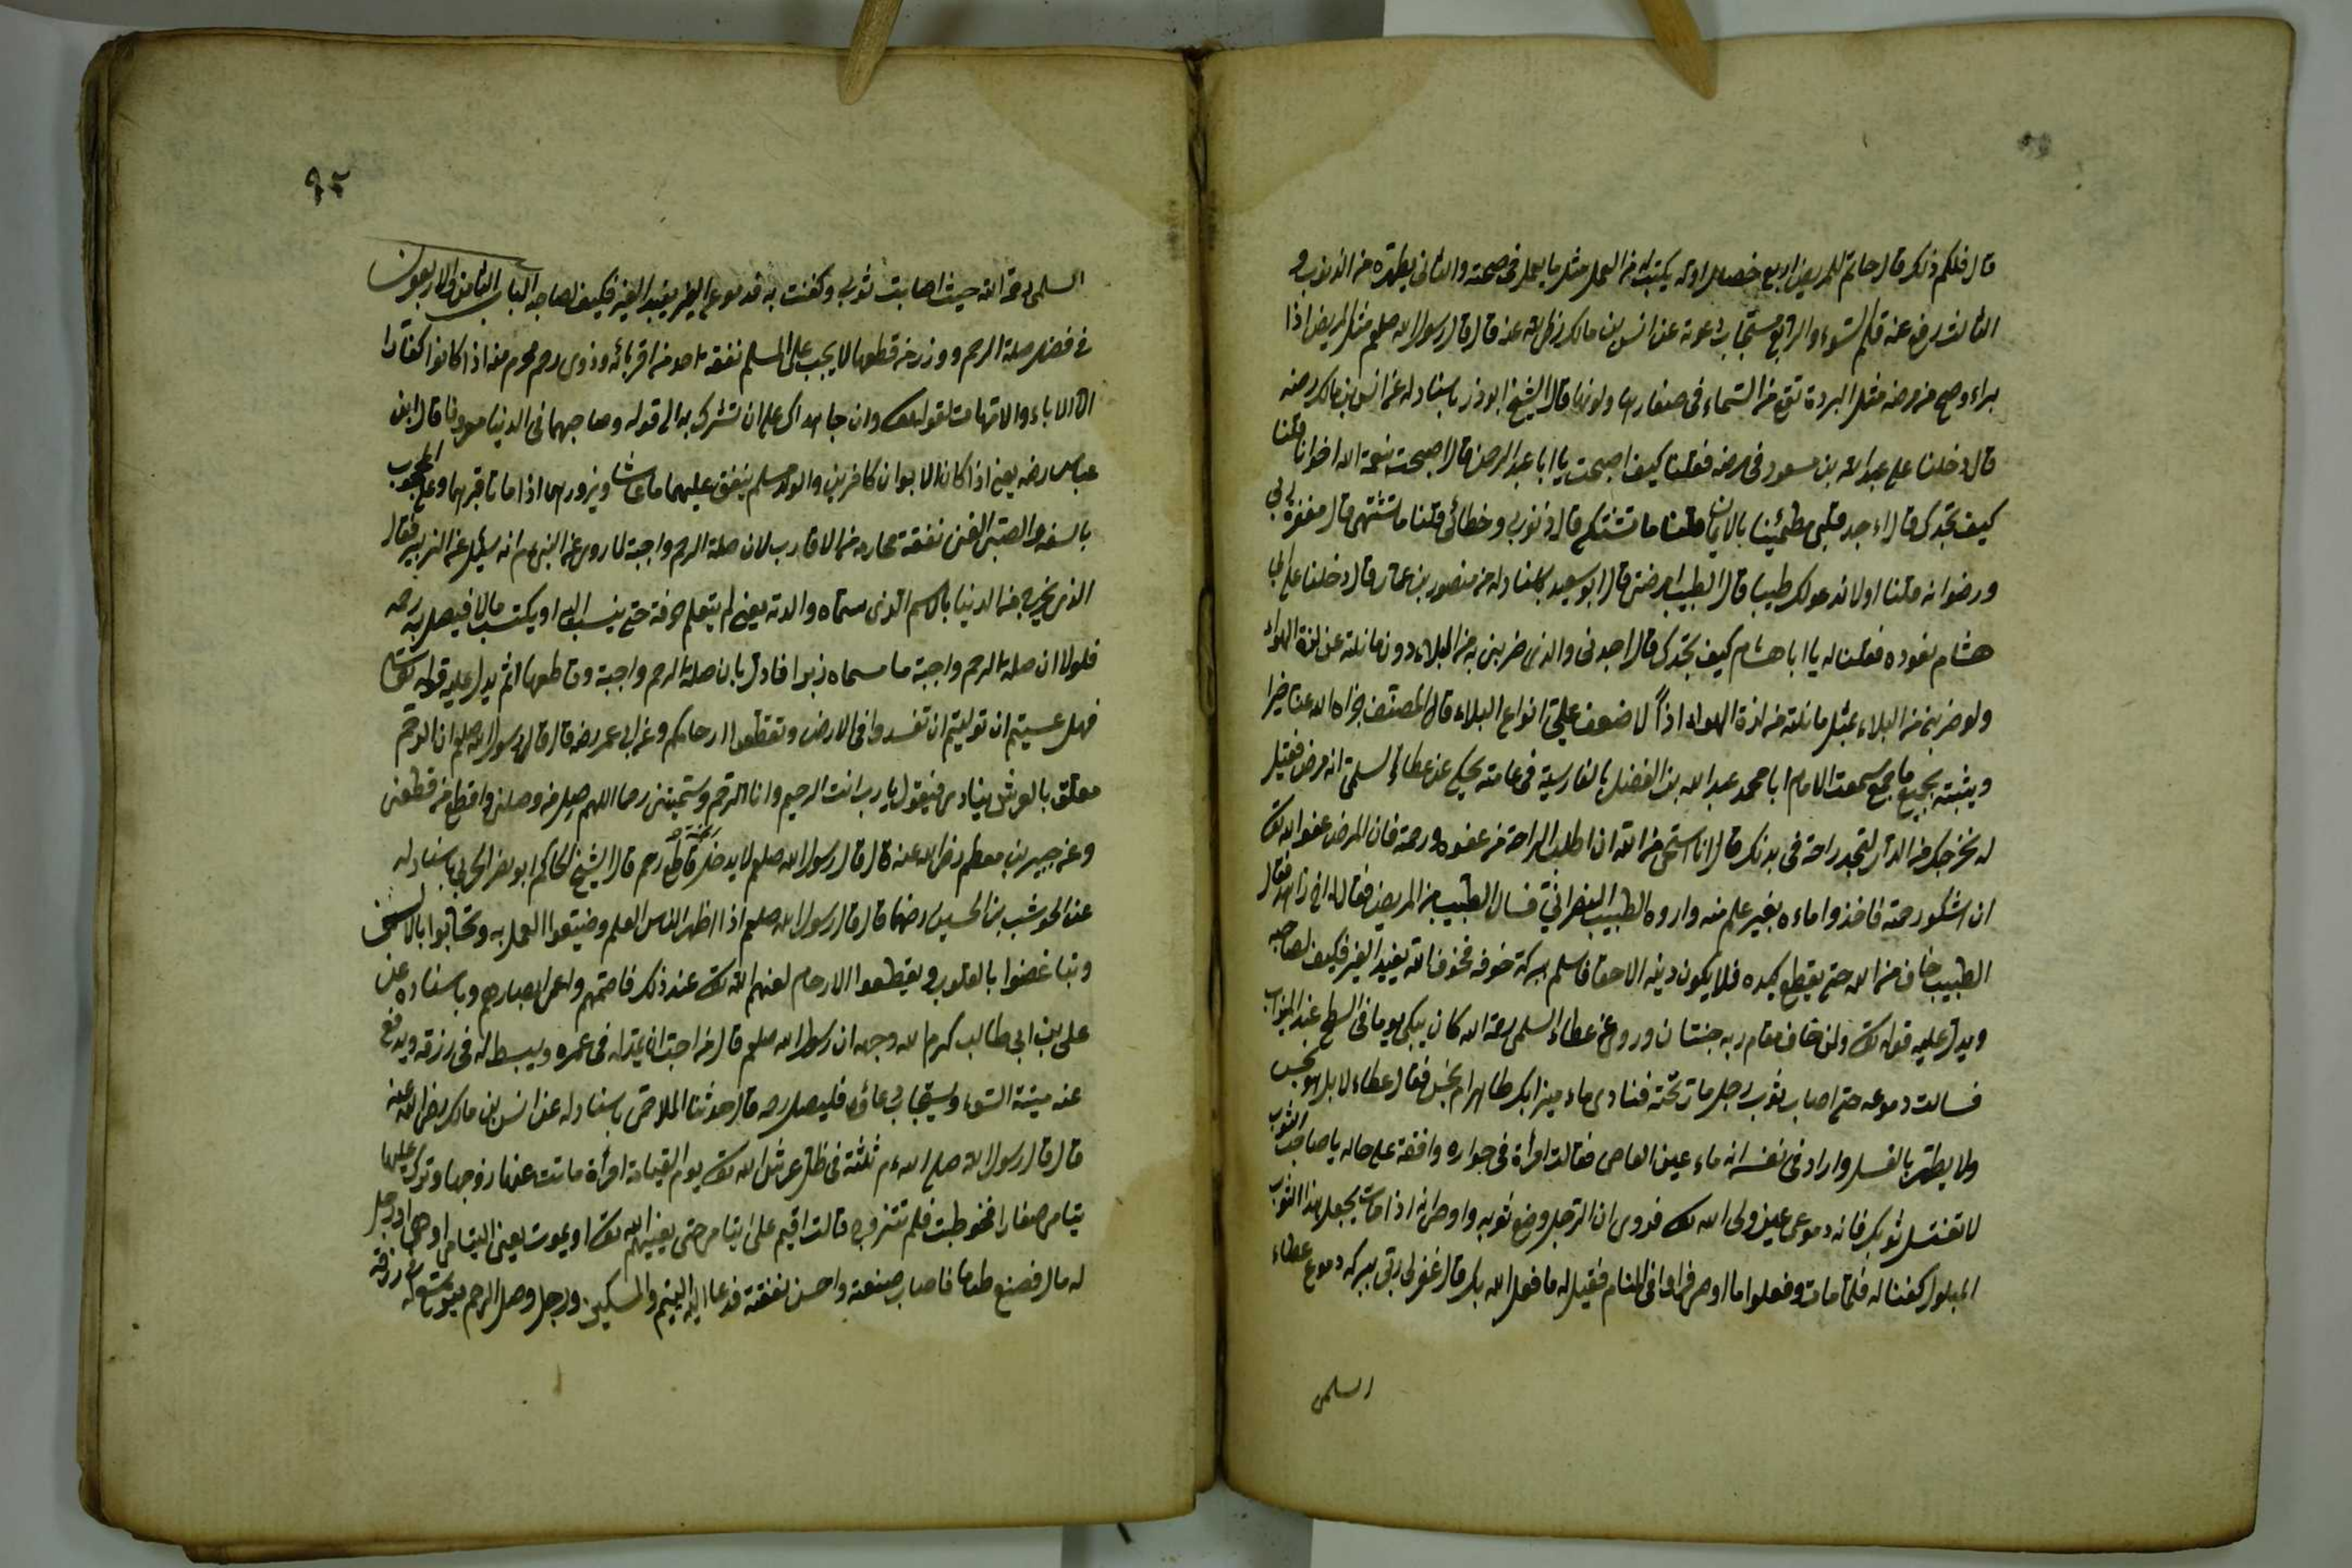 قال فلكم ذلك قال حاتم للمريض اربع خصال اوله يكتب له من العمل مثل ما يعمل فى صحته والثانى يطهره من الذنوب و
الثالث يرفع عنه قلم السوء والرابع مستجاب دعوته عن انس بن مالك رضى الله عنه قال قال رسول الله صلعم مثل المريض اذا
براء وصح من مرضه مثل البردة تقع من السماء فى صفاء رها ولونها قال الشيخ ابو ذر باسناد له عن انس بن مالك رضه
قال دخلنا على عبد الله بن مسعود فى مرضه فقلنا كيف اصبحت يا ابا عبد الرحمن قال اصبحت بنعمة الله اخوانا قلنا
كيف تجدك قال اءجد قلبى مطمئنا بالايمان قلنا ما تشتكى قال ذنوبى وخطائى قلنا ما تشتهى قال مغفرة ربى
ورضوانه قلنا اولا ندعو لك طبيبا قال الطبيب امرضنى قال ابو سعيد باسناد له عن منصور بن عمار قال دخلنا على ابى
هشام نعوده فقلنا له يا ابا هشام كيف تجدك قال اجدنى والذى ضربنى به من البلاء دون ما نلته من لذة الهواء
ولو ضربنى من البلاء بمثل ما نلته من لذة الهواء اذاً لاضعف على انواع البلاء قال المصنف جزاه الله عنا خيرا
ويثبته بجميع ما جمع سمعت الامام ابا محمد عبد الله بن الفضل بالفارسية فى عامته يحكى عن عطاء السلمى انه مرض فقيل
له نخرجك من الدار لتجد راحة فى بدنك قال انا استحى من الله ان اطلب الراحة من عفوه ورحمة فان المرض عفو الله تعالى
ان اشكو رحمته فاخذوا ماءه بغير علم منه واروه الطبيب النصرانى فسال الطبيب من المريض فقال له اخ زاهد فقال
الطبيب خاف من الله حتى يقطع كبده فلا يكون دينه الا حقا فاسلم ببركة خوفه فخوف الله يفيد الغير فكيف لصاحبه
ويدل عليه قوله تعالى ولمن خاف مقام ربه جنتان وروى عن عطاء السلمى رحمة الله كان يبكى يوما فى السطح عند الميزاب
فسالت دموعه حتى اصاب ثوب رجل مار تحته فنادى ماء ميزابك طاهر ام نجس فقال عطاء لا بل هو نجس
ولا يطهر بالغسل واراد فى نفسه انه ماء عين العاصى فقالت امرأة فى جواره وافقة على حاله يا صاحب الثوب
لا تغتسل ثوبك فانه دموعى عين ولى الله تعالى فروى ان الرجل وضع ثوبه واوصى انه اذا مات يجعل هذا الثوب
المبلول كفنا له فلما مات وفعلوا ما اوصى فراوا فى المنام فقيل له ما فعل الله بك قال غفر لى ربى ببركة دموع عطاء
السلمى
٩٢
السلمى رحمة الله حيث اصابت ثوبى وكفنت به فدموع الغير يفيد الغير فكيف لصاحبه الباب الثامن والاربعون
فى فضل صلة الرحم ووزر من قطعها لا يجب على المسلم نفقة احد من اقربائه وذوى رحم محرم منه اذا كانوا كفارا
الا الاباء والامهات لقوله تعالى وان جاهداك على ان تشرك به الى قوله وصاحبهما فى الدنيا معروفا قال ابن
عباس رضه يعنى اذا كان الابوان كافرين والولد مسلم ينفق عليهما ما عاشا ويزورهما اذا ماتا قبرهما وعلى المحجوب
بالسفه والصبى الغنى نفقة محارمه من الاقارب لان صلة الرحم واجبة لما روى عن النبى عم انه سئل عن الزبير فقال
الذى يخرج من الدنيا بالاسم الذى سماه والدته يعنى لم يتعلم حرفة حتى ينسب اليه او يكتسب مالا فيصل به رحمه
فلولا ان صلة الرحم واجبة ما سماه زبرا فادل بان صلة الرحم واجبة وقاطعها اثم يدل عليه قوله تعالى
فهل عسيتم ان توليتم ان تفسدوا فى الارض وتقطعوا ارحامكم وعن ابى عمر رضه قال قال رسول الله صلعم ان الرحم
معلق بالعرش ينادى فيقول يا رب انت الرحيم وانا الرحم وسميتنى رحما اللهم صل من وصلنى واقطع من قطعنى
وعن جبير بن مطعم رضى الله عنه قال قال رسول الله صلعم لا يدخل الجنة قاطع رحم قال الشيخ الحاكم ابو نصر الحربى باسناد له
عن الحوشب بن الحسين رضهما قال قال رسول الله صلعم اذا اظهر الناس العلم وضيعوا العمل به وتحابوا بالالسن
وتباغضوا بالقلوب ويقطعوا الارحام لعنهم الله تعالى عند ذلك فاصمهم واعمى ابصارهم وباسناده عن
على بن ابى طالب كرم الله وجهه ان رسول الله صلعم قال من احب ان يمد له فى عمره ويبسط له فى رزقه ويدفع
عنه ميتة السوء ويستجاب دعائه فليصل رحمه قال حدثنا الملاحمى باسناد له عن انس بن مالك رضى الله عنه
قال قال رسول الله صلى الله عم ثلثة فى ظل عرش الله تعالى يوم القيامة امرأة ماتت عنها زوجها وترك عليها
يتامى صغارا فخوطبت فلم تتزوج قالت اقيم على ايتامى حتى يغنيهم الله تعالى او يموت يعنى اليتامى او هى ورجل
له مال فصنع طعاما فاصاب صنعته واحسن نفقته فدعا اليه اليتيم والمسكين ورجل وصل الرحم يوسع له فى رزقه